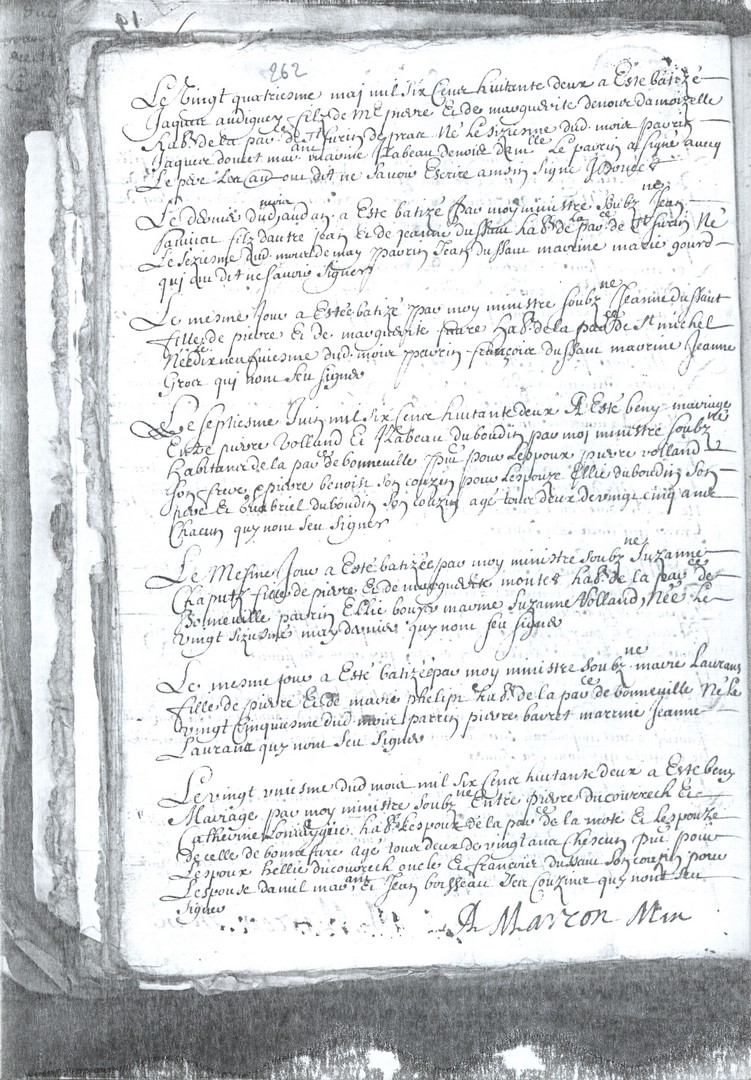 262
Le Vingt quatriesme maj mil Six Cens huitante deux a Este batizé
Jaques audiguey filz de Me pierre Et de marguerite denoue damoizelle
habs de la par de St surin de prax Né Le sizieme dud. moix parrin
Jaques doulet mar Izabeau denois dam.lle Le parrin a signé aucq
Le père ont dit ne Savoir Escrire amoin Signe
Le dernier dud moix a Este batizé par moy ministre Soubz.né Jean
filz dautre Jean Et de Jeanne dussaut habs de la par.ce de St surin Né
Le Sezieme dud. mois de may parrin Jean dussaut marrine marie gourd
qui ont dit ne Savoir Signer
Le mesme Jour a Este batizé par moy ministre Soubz.ne Jeanne dussaut
fille de pierre Et de marguerite faure habs de la par.ce de St michel
Née Le dix neufuiesme dud. moix parrin françois dussaut marrine Jeanne
Gros qui nont Seu Signer
Le Septiesme Juin mil Six Cens huitante deux A Esté beny mariage
Entre pierre Volland Et Izabeau duboudin par moi ministre Soubz.né
habitans de la par de bonneuille pnt pour Lespoux pierre volland
Son frere, pierre benoist Son Couzin pour Lespouze Ellie duboudin Son
pere Et Gabriel duboudin Son Couzin agé tour deux de vingt cinq ans
Chacun quy nont Seu Signer
Le Mesme Jour a Esté batizée par moy ministre Soubz.ne Suzanne
Chaputz fille de pierre Et de marguerite montez habs de la par.ce de
Bonneuille parrin Ellie bouyer marine Suzanne Volland, Née Le
vingt Sizieme may dernier quy nont seu signer
Le mesme jour a Esté batizée par moy ministre Soubz.ne marie Laurans
fille de pierre Et de marie phelipz habs de la par.ce de bonneuille Né Le
vingt Cinquiesme dud. moix parrin pierre barret marrine Jeanne
Laurans quy nont Seu Signer
Le vingt vniesme dud moix mil Six Cens huitante deux a Este beny
Mariage par moy ministre Soubz.ne Entre pierre ducouvrech Et
Catherine habs Lespoux de la par de la mote Et Lespouze
de celle de bonnefare agé tour deux de vingt ans Chascun pnt pour
Lespoux hellie ducouvrech oncle Et françois dussau Son Couzin pour
Lespouse danil Et Jean boisseau Ses Couzins quy nont seu
signer
A Marcon Min